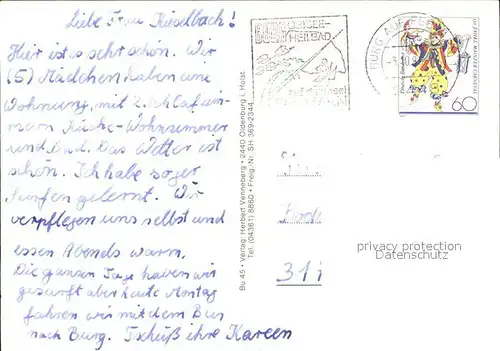 Liebe Frau Kieselbach!
Hier ist es sehr schön. Wir
(5) Mädchen haben eine
Wohnung, mit 2 Schlafzim-
mern Küche-Wohnzimmer
und Bad. Das Wetter ist
schön. Ich habe sogar
surfen gelernt. Wir
verpflegen uns selbst und
essen Abends warm.
Die ganzen Tage haben wir
gesurft aber heute Montag
fahren wir mit dem Bus
nach Burg. Tschüß ihre Kareen
Bu 45 • Verlag: Herbert Venneberg • 2440 Oldenburg i. Holst.
Tel. (04361) 8660 • Freig.-Nr. SH 369-2344
OSTSEE-
HEILBAD
BURG AUF FEHMARN
60
privacy protection
Datenschutz